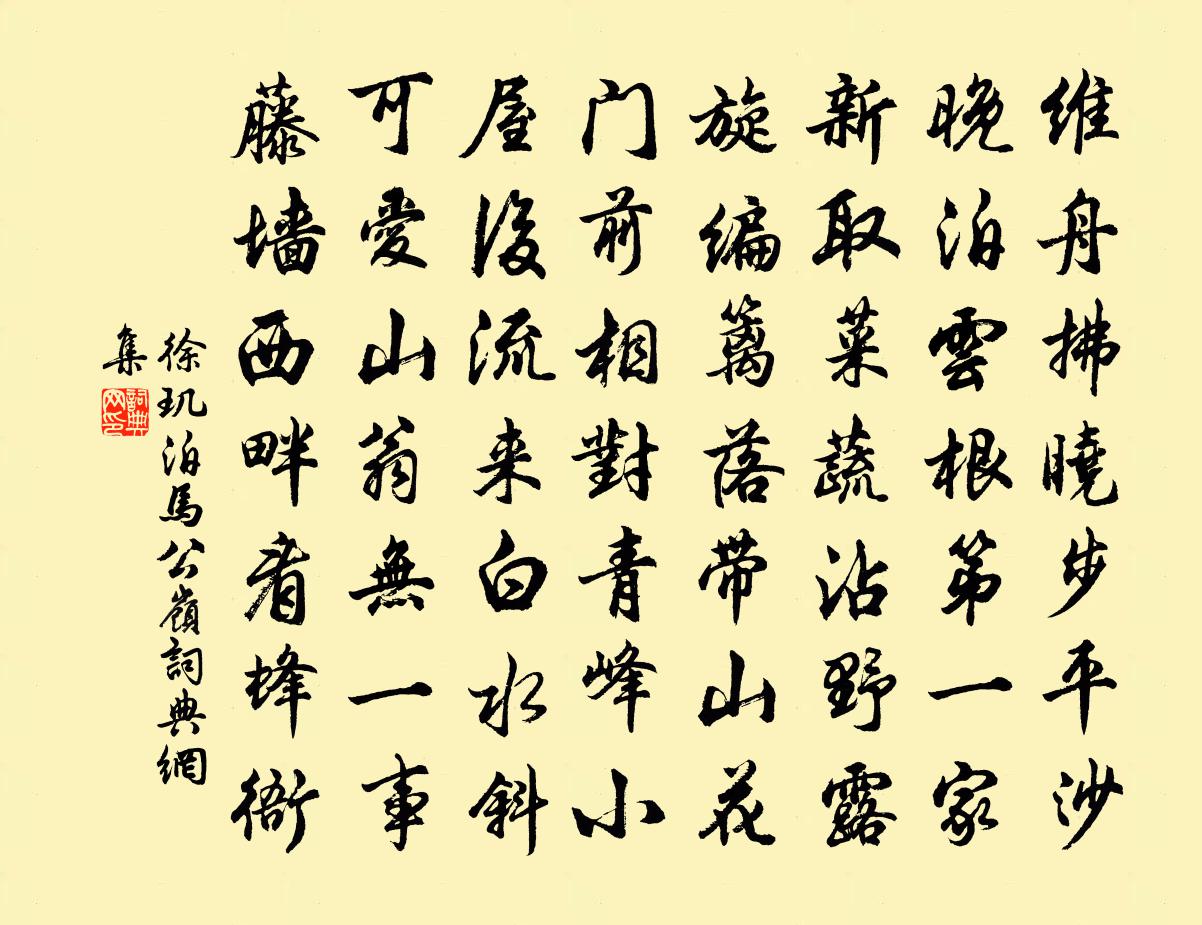 维舟拂曉步平沙
晚泊雲根第一家
新取菜蔬沾野露
旋编篱落带山花
门前相對青峰小
屋後流来白水斜
可愛山翁無一事
藤墙西畔看蜂衙
徐玑泊馬公嶺詞典網
集
詞典
网印